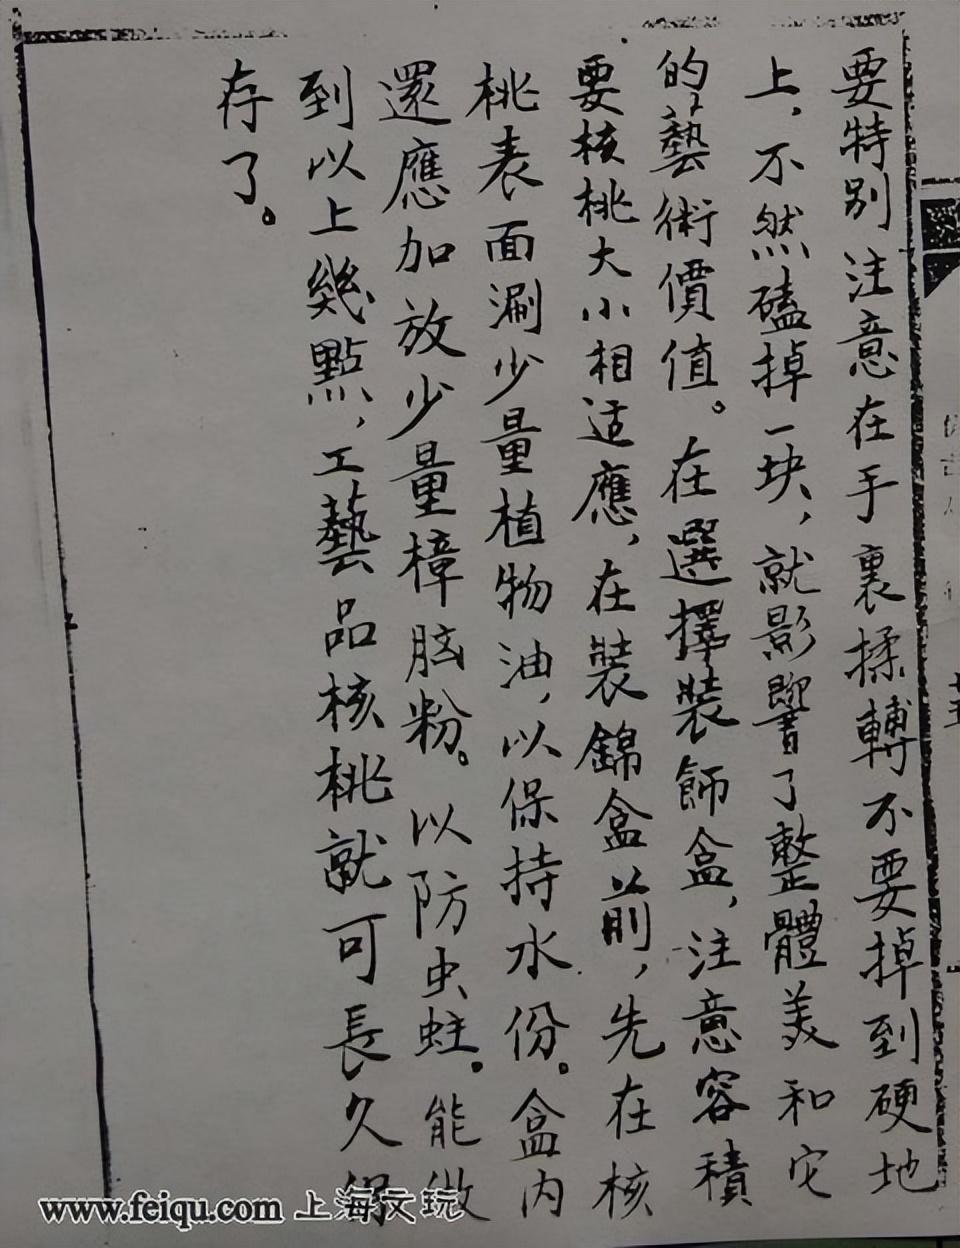 要特别注意在手裏揉轉不要掉到硬地
上，不然磕掉一块，就影響了整體美和它
的藝術價值。在選擇裝飾盒，注意容積
要核桃大小相适應，在裝錦盒前，先在核
桃表面涮少量植物油，以保持水份。盒内
還應加放少量樟脑粉。以防虫蛀。能做
到以上幾點，工藝品核桃就可長久保
存了。
www.feiqu.com 上海文玩